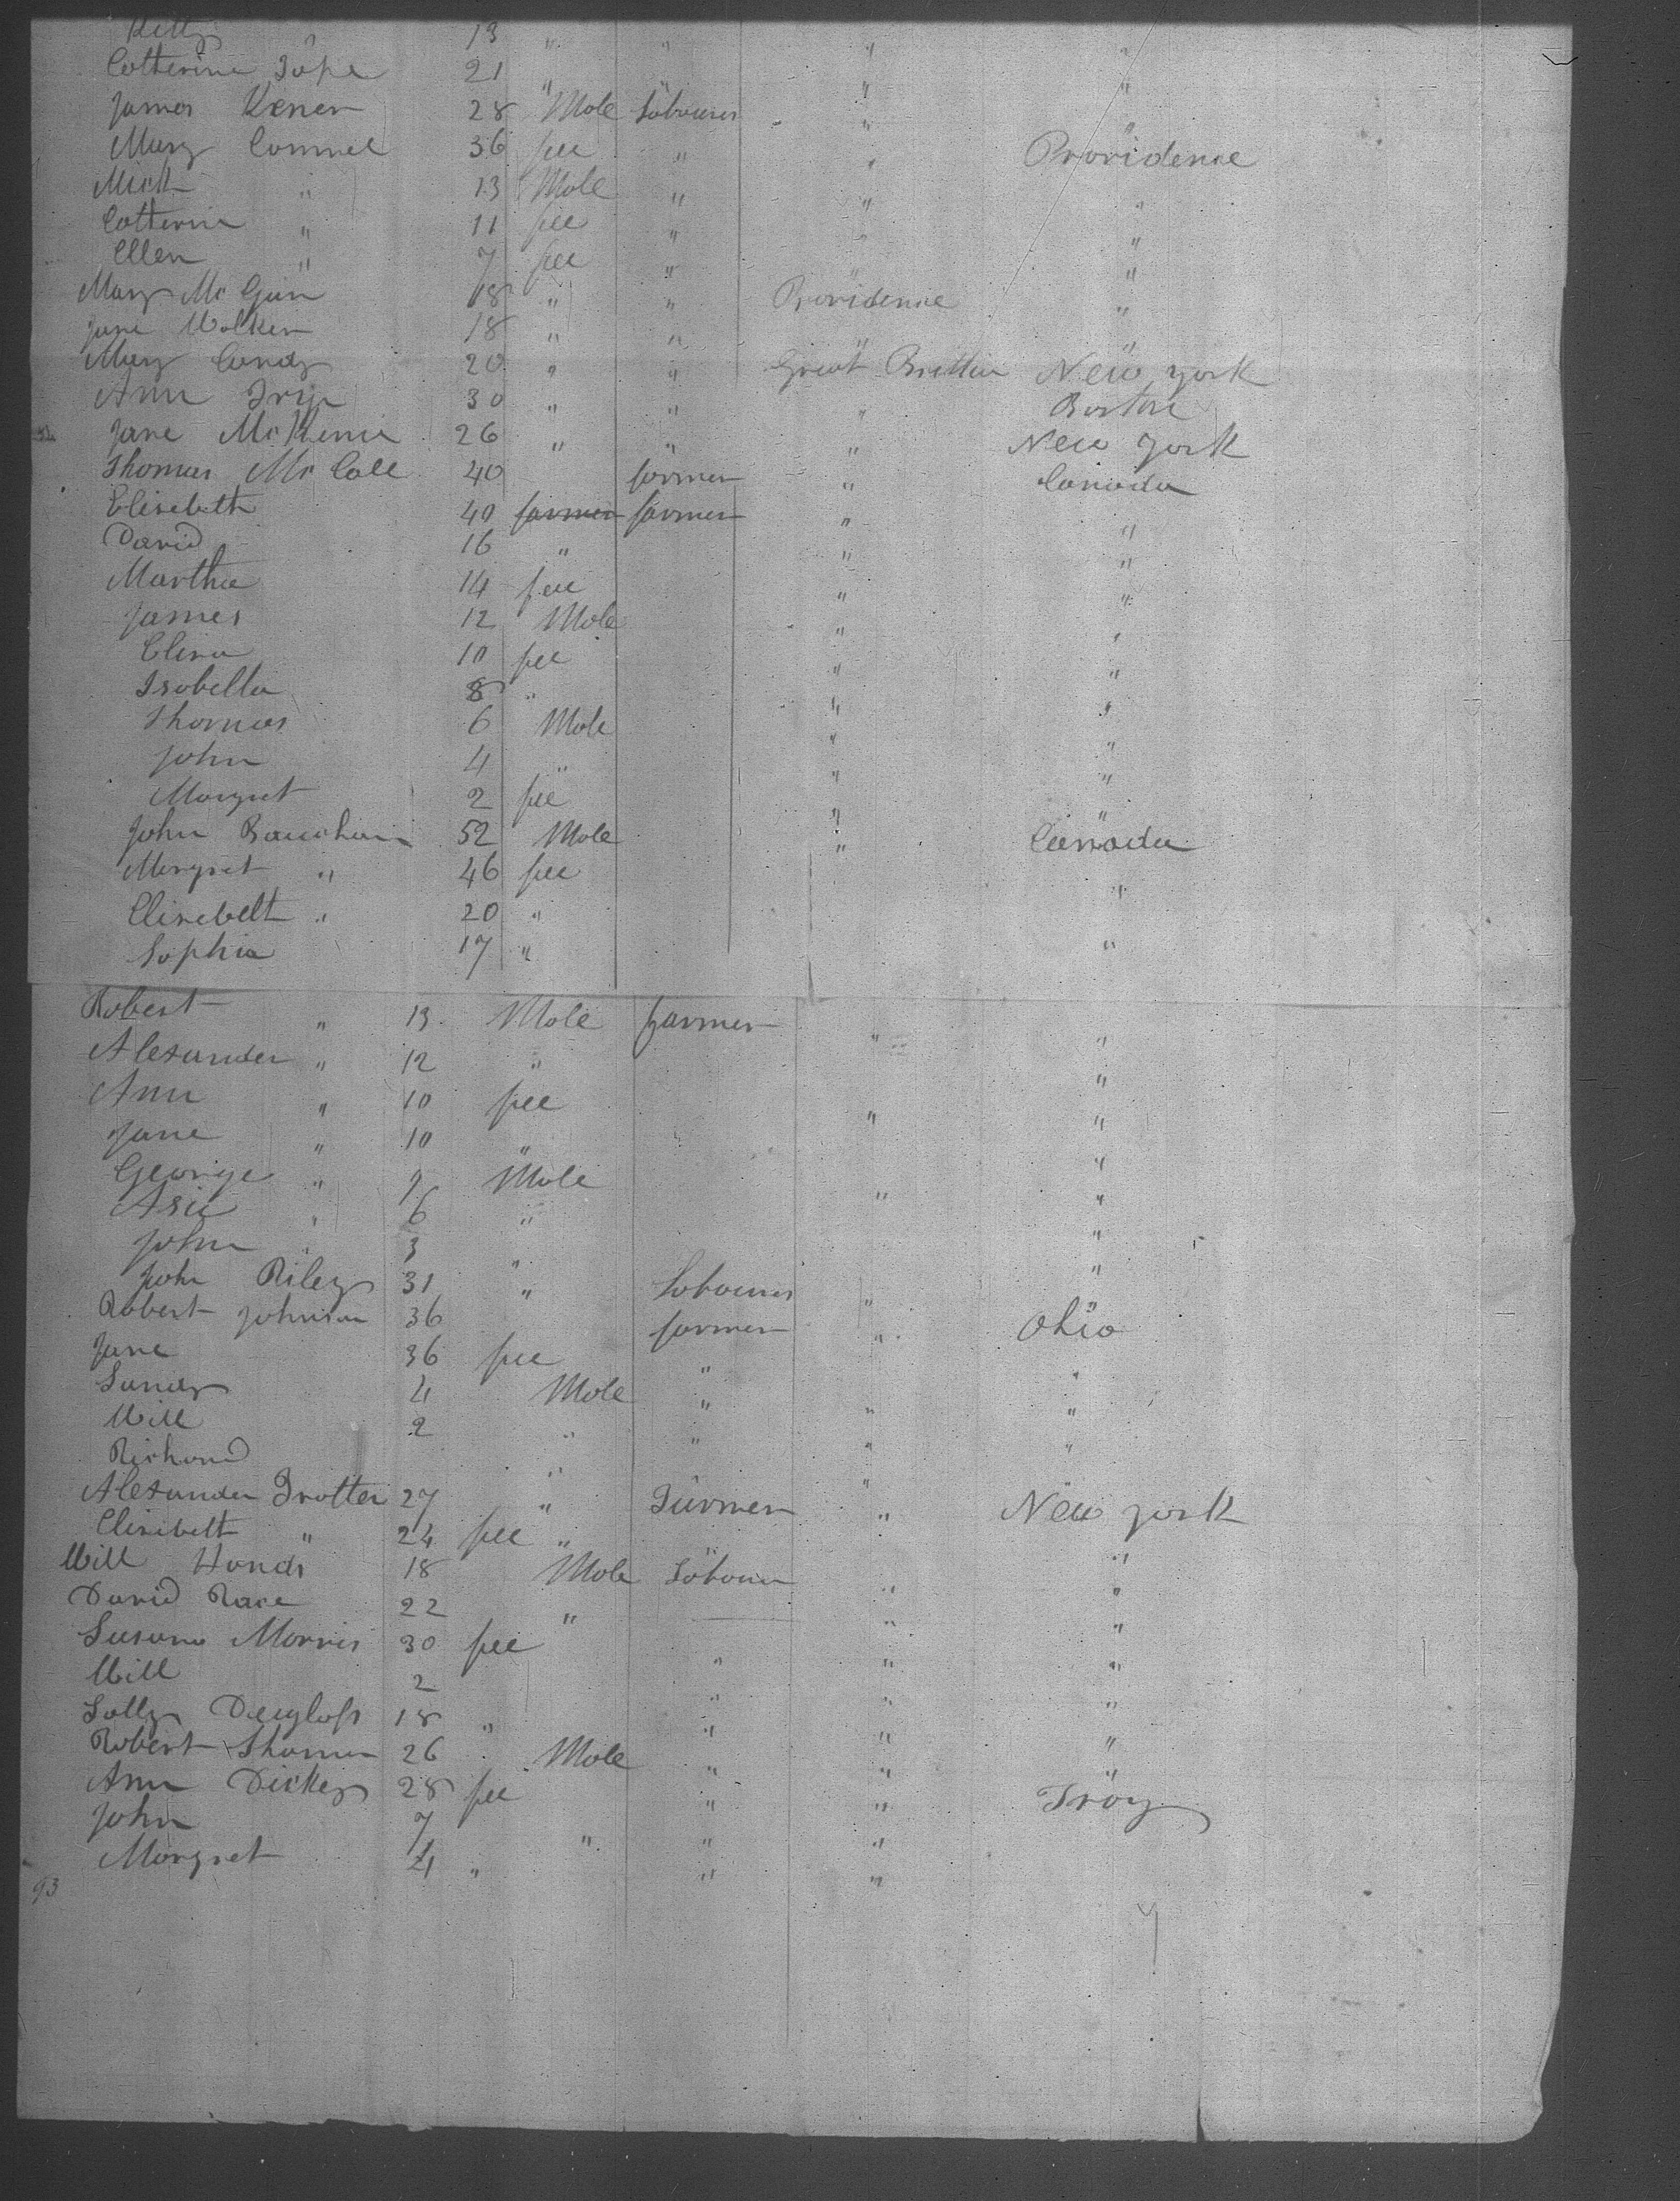 Kitty " 13 " " " "
Cotterine Tope 21 " " "
James Kener 28 Mole Labourer " "
Mary Connel 36 fee " " Providence
Mick " 13 Mole " " "
Cotterin " 11 fee " " "
Ellen " 7 fee " "
Mary Mc Gun 18 " " Providence "
Jane Wolker 18 " " " "
Mary Candy 20 " " Great Brittin New york
Ann Trip 30 " " " Boston
Jane McKenie 26 " " " New york
Thomas Mc Coll 40 farmer " Canada
Elisebeth 40 farmer farmer " "
David 16 " " "
Martha 14 fee " "
James 12 Mole " "
Elisa 10 fee " "
Isobella 8 " " "
Thomas 6 Mole " "
John 4 " " "
Morgret 2 fee " "
John Bauchan 52 Mole " Canada
Morgret " 46 fee "
Elisebelt " 20 "
Sophia 17 " "
Robert " 13 Mole farmer " "
Alexander " 12 " "
Ann " 10 fee " "
Jane " 10 " "
George " 9 Mole " "
Asie " 6 " "
John " 3 " "
John Riley 31 " Labourer "
Robert Johnson 36 farmer " Ohio
Jane 36 fee " "
Sandy 4 Mole " " "
Will 2 " " " "
Richard " "
Alexander Trotter 27 " Farmer " New york
Elisibelt " 24 fee " "
Will Hands 18 Mole Labourer " "
David Race 22 " " "
Susana Morris 30 fee " " "
Will 2 " " "
Sally Douglass 18 " " " "
Robert Thomson 26 Mole " " "
Ann Dickey 28 fee " " Troy
John 7 " " "
Morgret 4 " " "
93